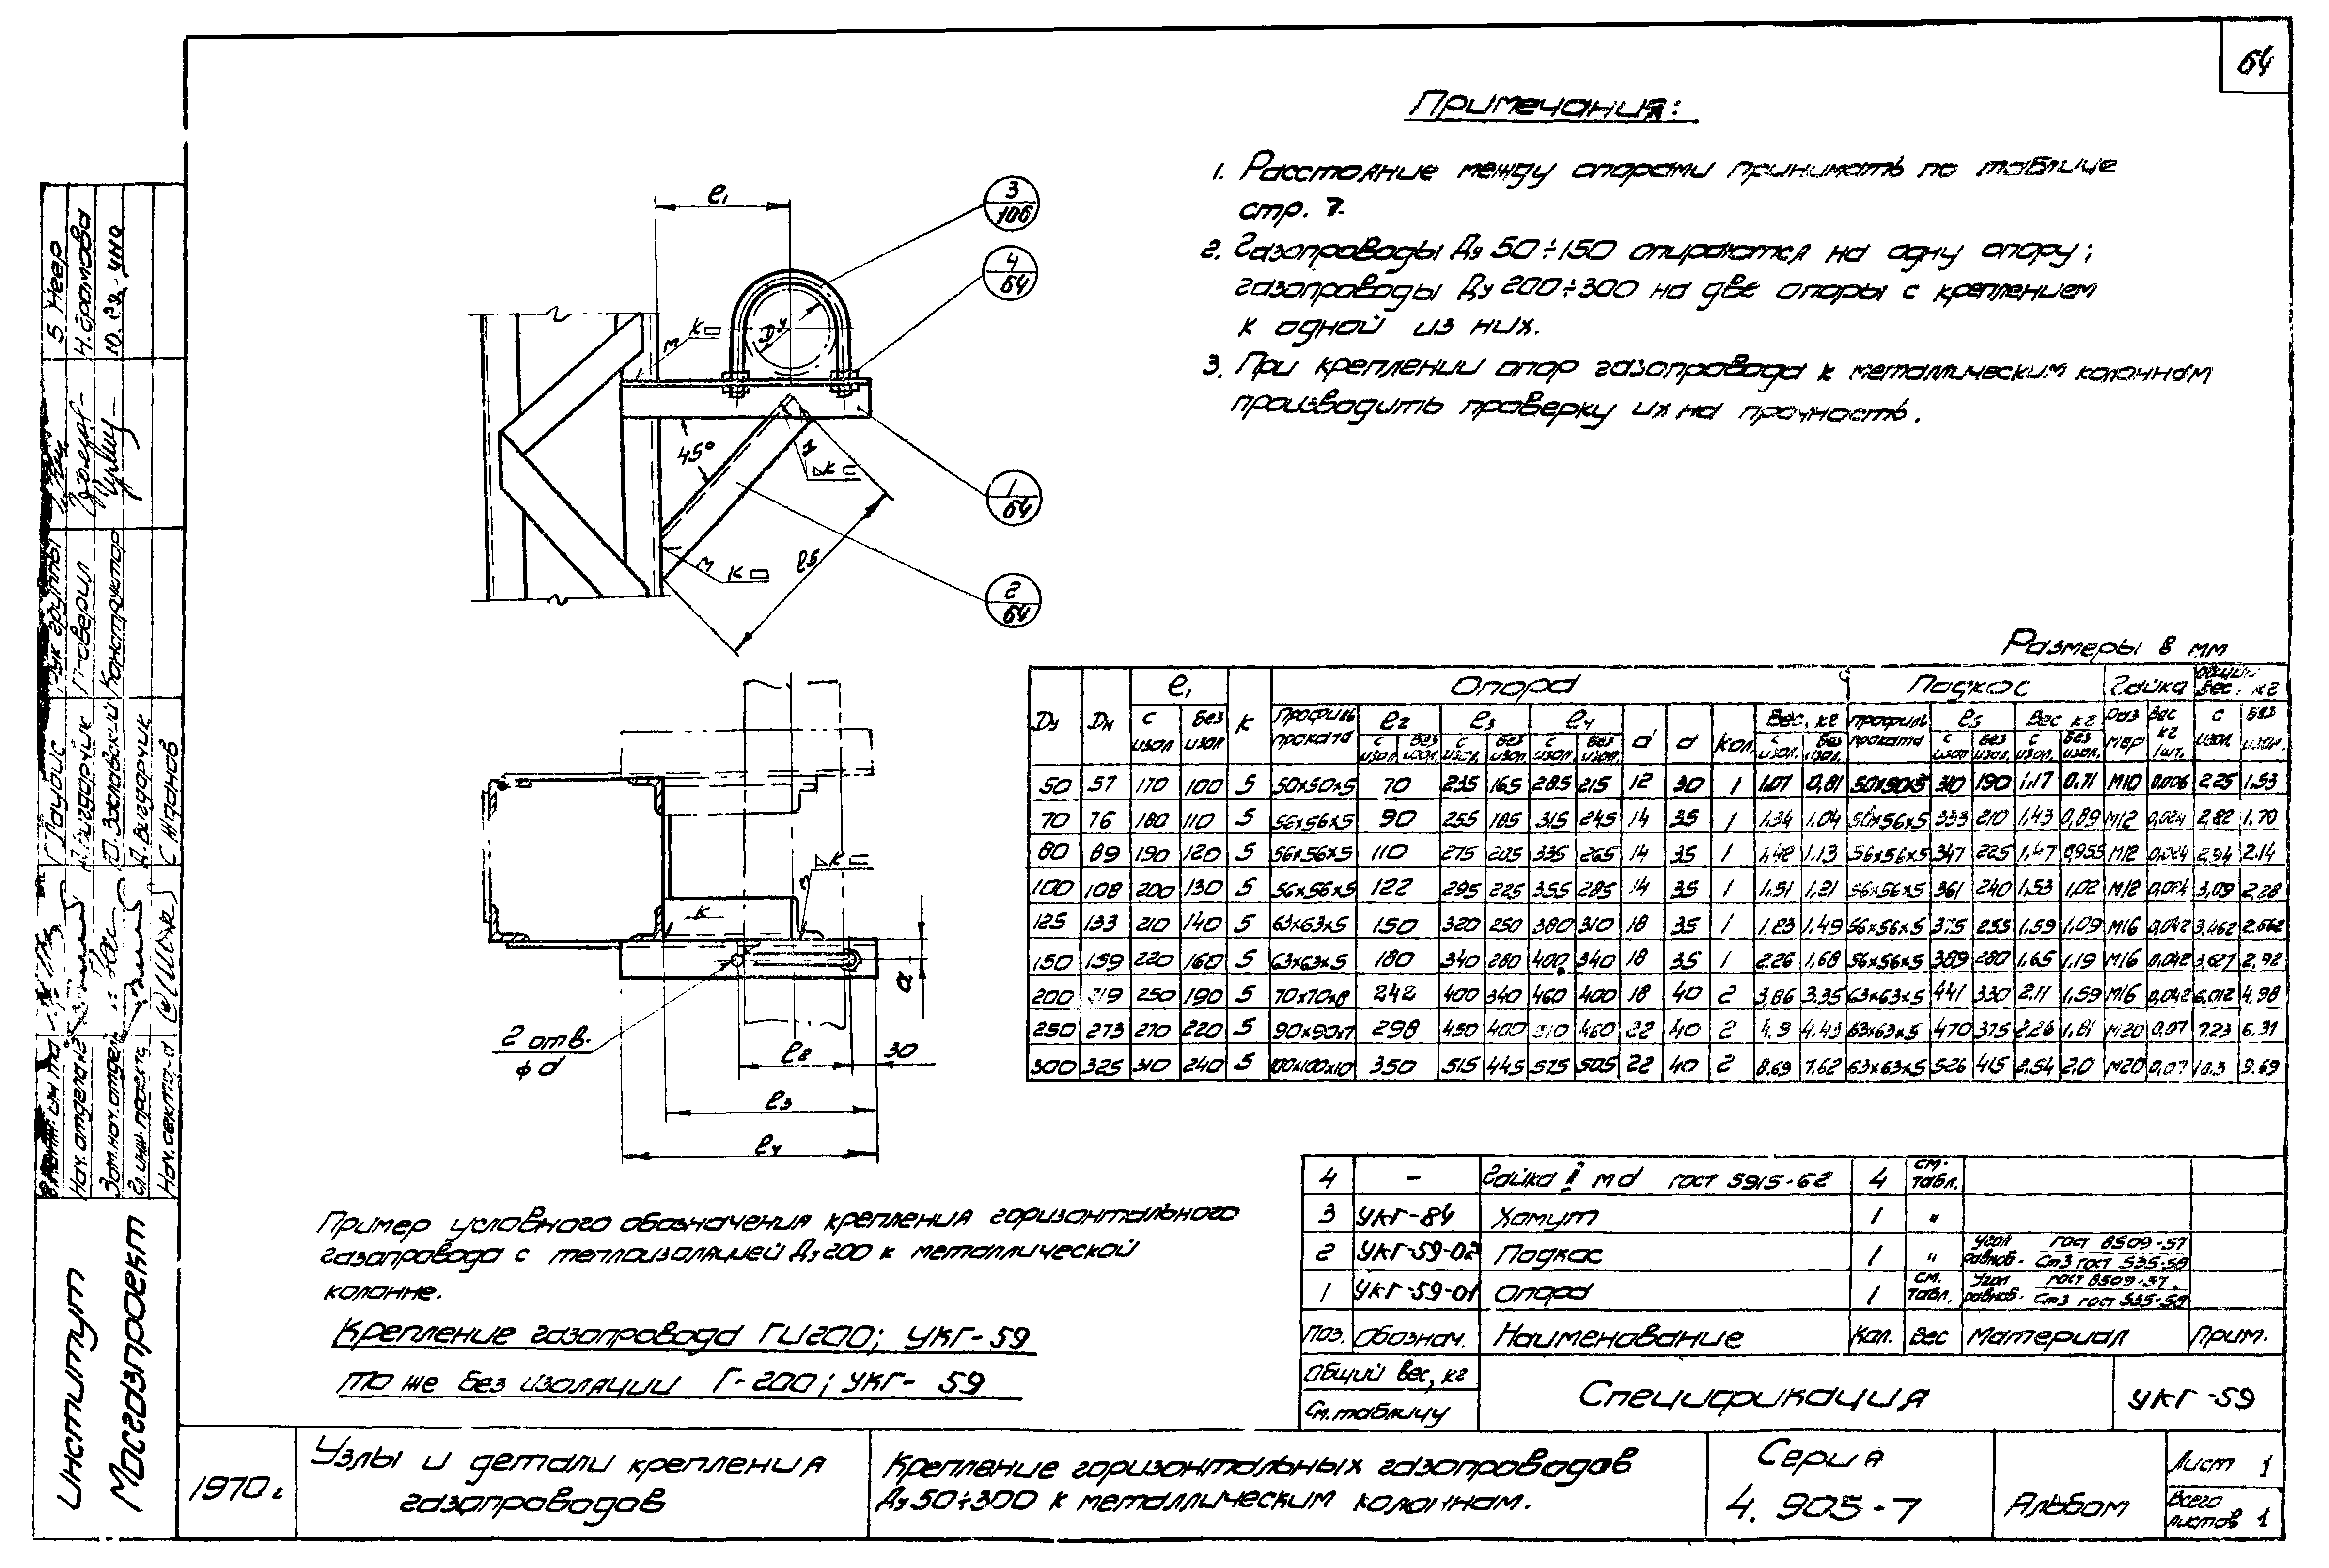 64
Примечания:
1. Расстояние между опорами принимать по таблице
стр. 7.
2. Газопроводы Ду 50÷150 опираются на одну опору;
газопроводы Ду 200÷300 на две опоры с креплением
к одной из них.
3. При креплении опор газопровода к металлическим колоннам
производить проверку их на прочность.
e₁
3/106
4/64
1/64
2/64
К
Ду
45°
К
К
e5
К
К
a
2 отв.
ϕ d
e2
30
e3
e4
Размеры в мм
Ду Дн e₁ К Опора Подкос Гайка Общий вес, кг
с изол без изол Профиль проката e2 e3 e4 a d Кол. Вес, кг Профиль проката e5 Вес кг Раз мер Вес кг 1шт. с изол. без изол.
с изол без изол. с изол. без изол. с изол. без изол. с изол. без изол. с изол без изол. с изол. без изол.
50 57 170 100 5 50x50x5 70 235 165 285 215 12 30 1 1,07 0,81 50x50x5 310 190 1,17 0,71 М10 0,006 2,25 1,53
70 76 180 110 5 56x56x5 90 255 185 315 245 14 35 1 1,34 1,04 56x56x5 333 210 1,43 0,89 М12 0,024 2,82 1,70
80 89 190 120 5 56x56x5 110 275 205 335 265 14 35 1 1,42 1,13 56x56x5 347 225 1,47 0,955 М12 0,024 2,94 2,14
100 108 200 130 5 56x56x5 122 295 225 355 285 14 35 1 1,51 1,21 56x56x5 361 240 1,53 1,02 М12 0,024 3,09 2,28
125 133 210 140 5 63x63x5 150 320 250 380 310 18 35 1 1.83 1.49 56x56x5 375 255 1,59 1,09 М16 0,042 3,462 2.662
150 159 220 160 5 63x63x5 180 340 280 400 340 18 35 1 2.26 1,68 56x56x5 389 280 1,65 1,19 М16 0,042 3,627 2,92
200 219 250 190 5 70x70x8 242 400 340 460 400 18 40 2 3,86 3.35 63x63x5 441 330 2,11 1,59 М16 0,042 6,012 4,98
250 273 270 220 5 90x90x7 298 450 400 510 460 22 40 2 4.9 4.43 63x63x5 470 375 2.26 1,81 М20 0,07 7.23 6.31
300 325 310 240 5 100x100x10 350 515 445 575 505 22 40 2 8.69 7.62 63x63x5 526 415 2.54 2.0 М20 0,07 10.3 9.69
Пример условного обозначения крепления горизонтального
газопровода с теплоизоляцией Ду 200 к металлической
колонне.
Крепление газопровода ГИ200; УКГ-59
то же без изоляции Г-200; УКГ-59
4 - Гайка II мd ГОСТ 5915-62 4 см. табл.
3 УКГ-84 Хомут 1 "
2 УКГ-59-02 Подкос 1 " Угол равноб. ГОСТ 8509-57 Ст3 ГОСТ 535-58
1 УКГ-59-01 Опора 1 см. табл. Угол равноб. ГОСТ 8509-57. Ст3 ГОСТ 535-58
Поз. Обознач. Наименование Кол. Вес Материал Прим.
Общий вес, кг
См. таблицу
Спецификация
УКГ-59
1970г
Узлы и детали крепления
газопроводов
Крепление горизонтальных газопроводов
Ду 50÷300 к металлическим колоннам.
Серия
4. 905-7
Альбом
Лист 1
Всего листов 1
Институт
Мосгазпроект
Нач. отдела
Зам. нач. отдела
Гл. инж. проекта
Нач. сектора
О. Заславский
А. Вигдорчик
С. Жданов
Рук. группы
Проверил
Конструктор